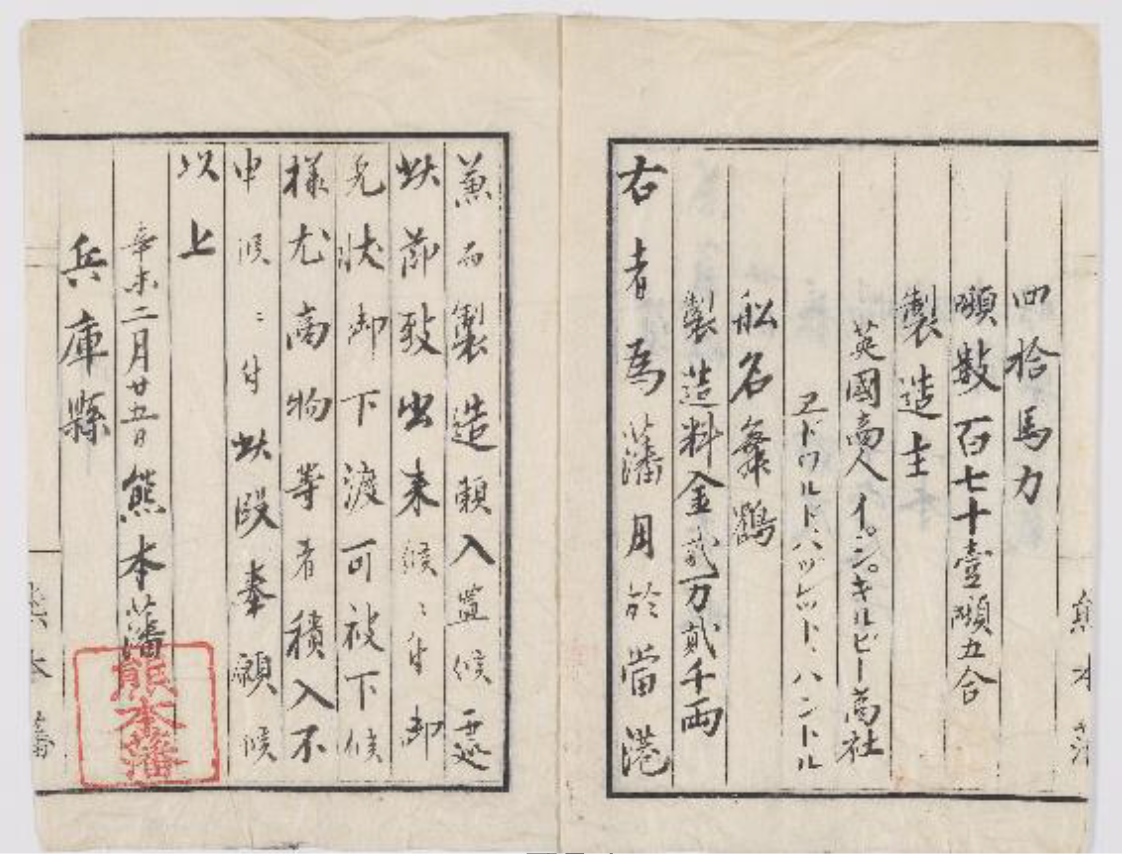 四拾馬力
噸数百七十壹噸五合
製造主
英國商人イ。シ。キルビー商社
ヱドワルド、ハツヒット、ハントル
船名舞鶴
製造料金貳万貳千両
右者為藩用於當港
兼而製造頼入置候処
此節致出来候ニ付御
免状御下渡可被下候
様尤商物等者積入不
申候ニ付此段奉願候
以上
辛未二月廿五日熊本藩
兵庫縣
熊本藩
熊本藩